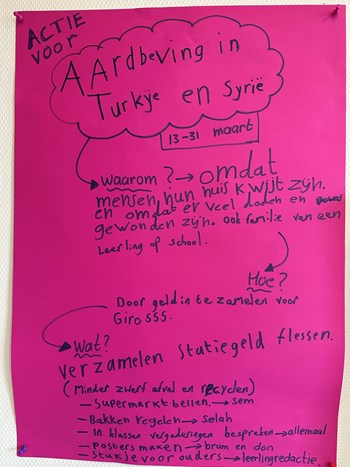 ACTIE
VOOR
AARdbeving in
Turkije en Syrië
13-31 maart
Waarom? → omdat
mensen hun huis kwijt zijn.
en omdat er veel doden en
gewonden zijn. ook familie van een
Leerling of school.
Hoe?
Door geld in te zamelen voor
Giro 555.
Wat?
verzamelen statiegeld flessen.
(Minder zwerf afval en recyclen)
- Supermarkt bellen. → sem
- Bakken regelen → selah
- In klassen vergaderingen bespreken → allemaal
- Posters maken → bram en don
- Stukje voor ouders → leerlingredactie